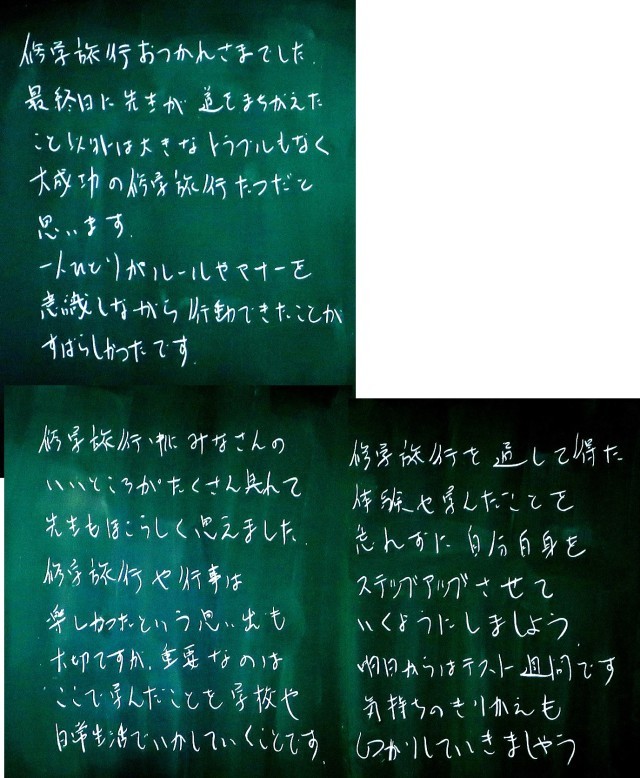 修学旅行おつかれさまでした.
最終日に先生が道をまちがえた
こと以外は大きなトラブルもなく
大成功の修学旅行だったと
思います.
一人ひとりがルールやマナーを
意識しながら行動できたことが
すばらしかったです.
修学旅行中にみなさんの
いいところがたくさん見れて
先生もほこらしく思えました.
修学旅行や行事は
楽しかったという思い出も
大切ですが、重要なのは
ここで学んだことを学校や
日常生活でいかしていくことです.
修学旅行を通して得た
体験や学んだことを
忘れずに自分自身を
ステップアップさせて
いくようにしましょう.
明日からはテスト週間です
気持ちのきりかえも
しっかりしていきましょう